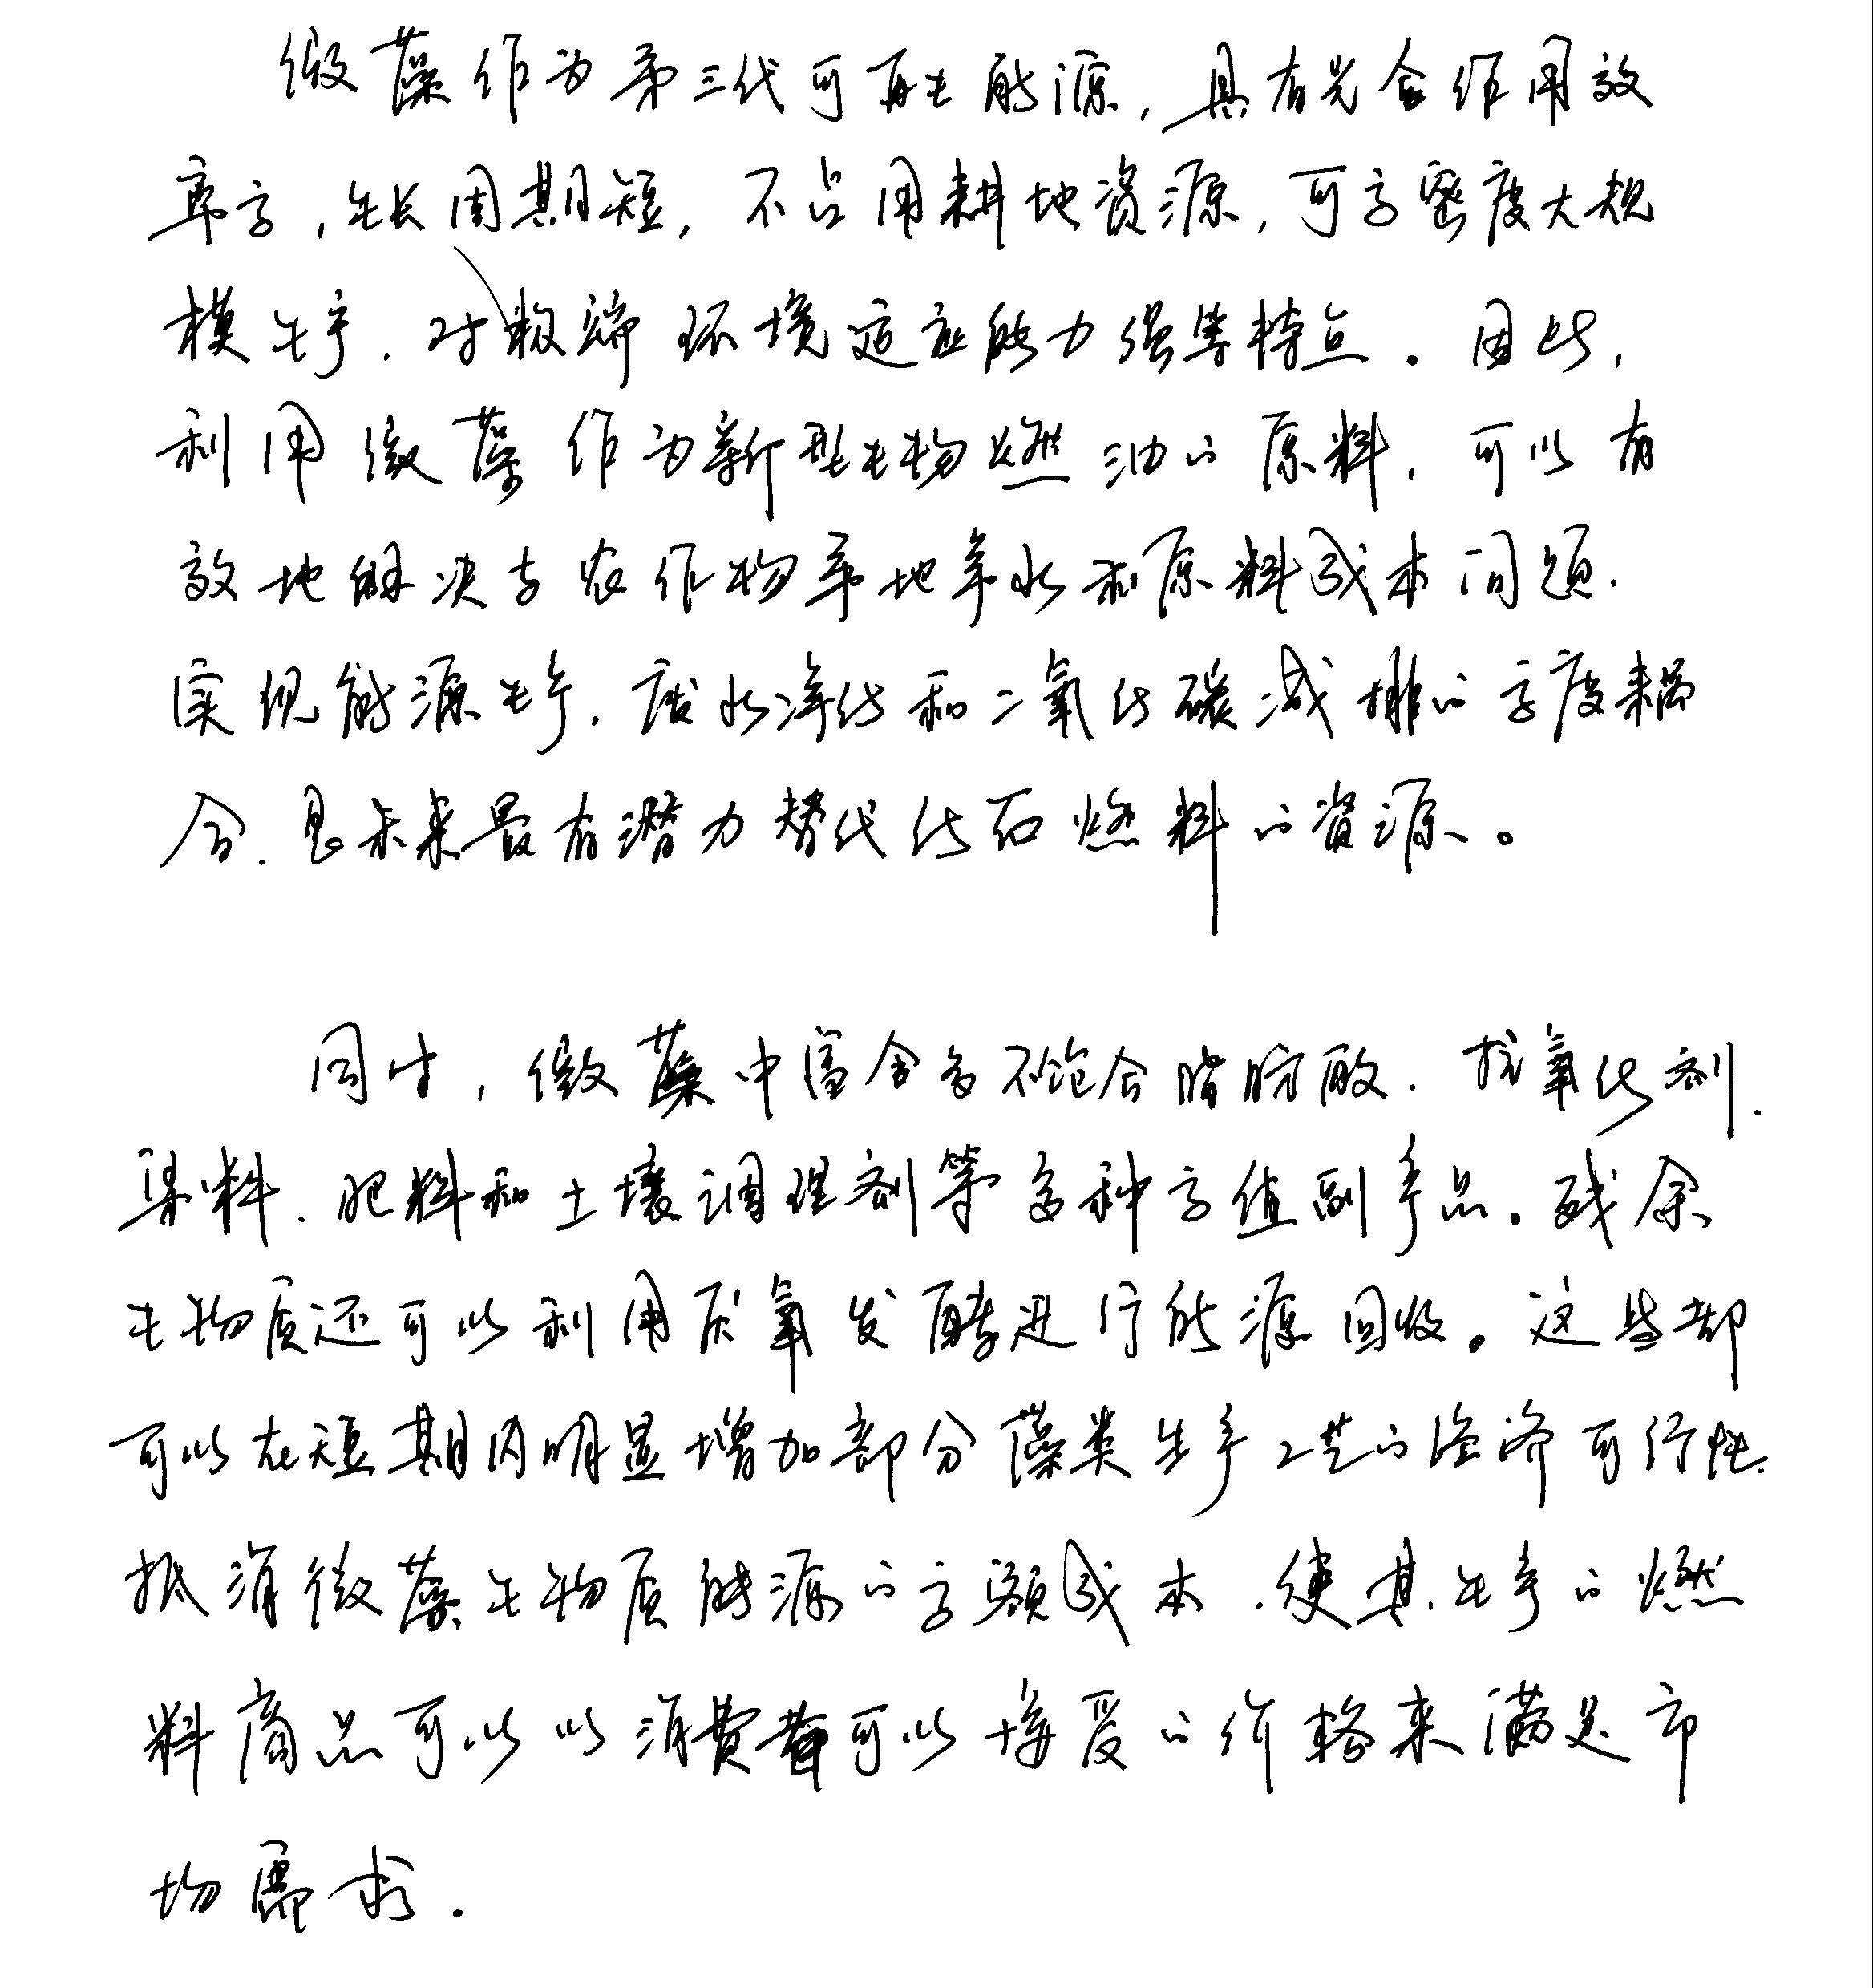 微藻作为第三代可再生能源,具有光合作用效
率高,生长周期短,不占用耕地资源,可高密度大规
模生产,对极端环境适应能力强等特点。因此,
利用微藻作为新型生物燃油的原料,可以有
效地解决与农作物争地争水和原料成本问题,
实现能源生产,废水净化和二氧化碳减排的高度耦
合,是未来最有潜力替代化石燃料的资源。
同时,微藻中富含多不饱合脂肪酸、抗氧化剂、
染料、肥料和土壤调理剂等多种高值副产品。残余
生物质还可以利用厌氧发酵进行能源回收。这些都
可以在短期内明显增加部分藻类生产工艺的经济可行性,
抵消微藻生物质能源的高额成本,使其生产的燃
料商品可以以消费者可以接受的价格来满足市
场需求.